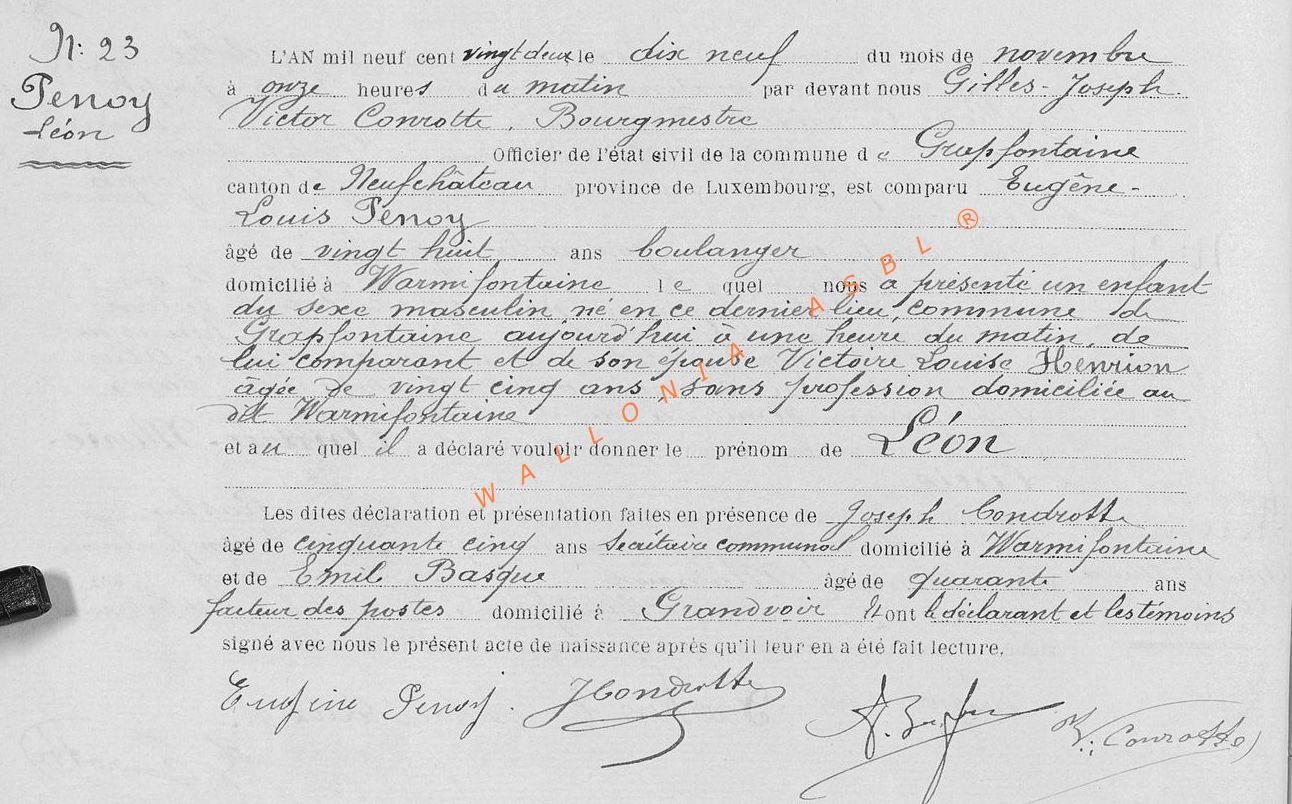 N: 23
Penoy
Léon
L'AN mil neuf cent vingt deux le dix neuf du mois de novembre
à onze heures du matin par devant nous Gilles-Joseph
Victor Conrotte, Bourgmestre
Officier de l'état civil de la commune de Grapfontaine
canton de Neufchâteau province de Luxembourg, est comparu Eugène-
Louis Penoy
âgé de vingt huit ans boulanger
domicilié à Warmifontaine le quel nous a présenté un enfant
du sexe masculin né en ce dernier lieu, commune de
Grapfontaine aujourd'hui à une heure du matin, de
lui comparant et de son épouse Victoire Louise Henrion
agée de vingt cinq ans, sans profession domiciliée au
dit Warmifontaine
et au quel il a déclaré vouloir donner le prénom de Léon
Les dites déclaration et présentation faites en présence de Joseph Condrotte
âgé de cinquante cinq ans secrétaire communal domicilié à Warmifontaine
et de Emil Basque âgé de quarante ans
facteur des postes domicilié à Grandvoir Et ont le déclarant et les témoins
signé avec nous le présent acte de naissance après qu'il leur en a été fait lecture.
Eugène Penoy. JCondrotte
V. Conrotte
WALLONIA ASBL ®